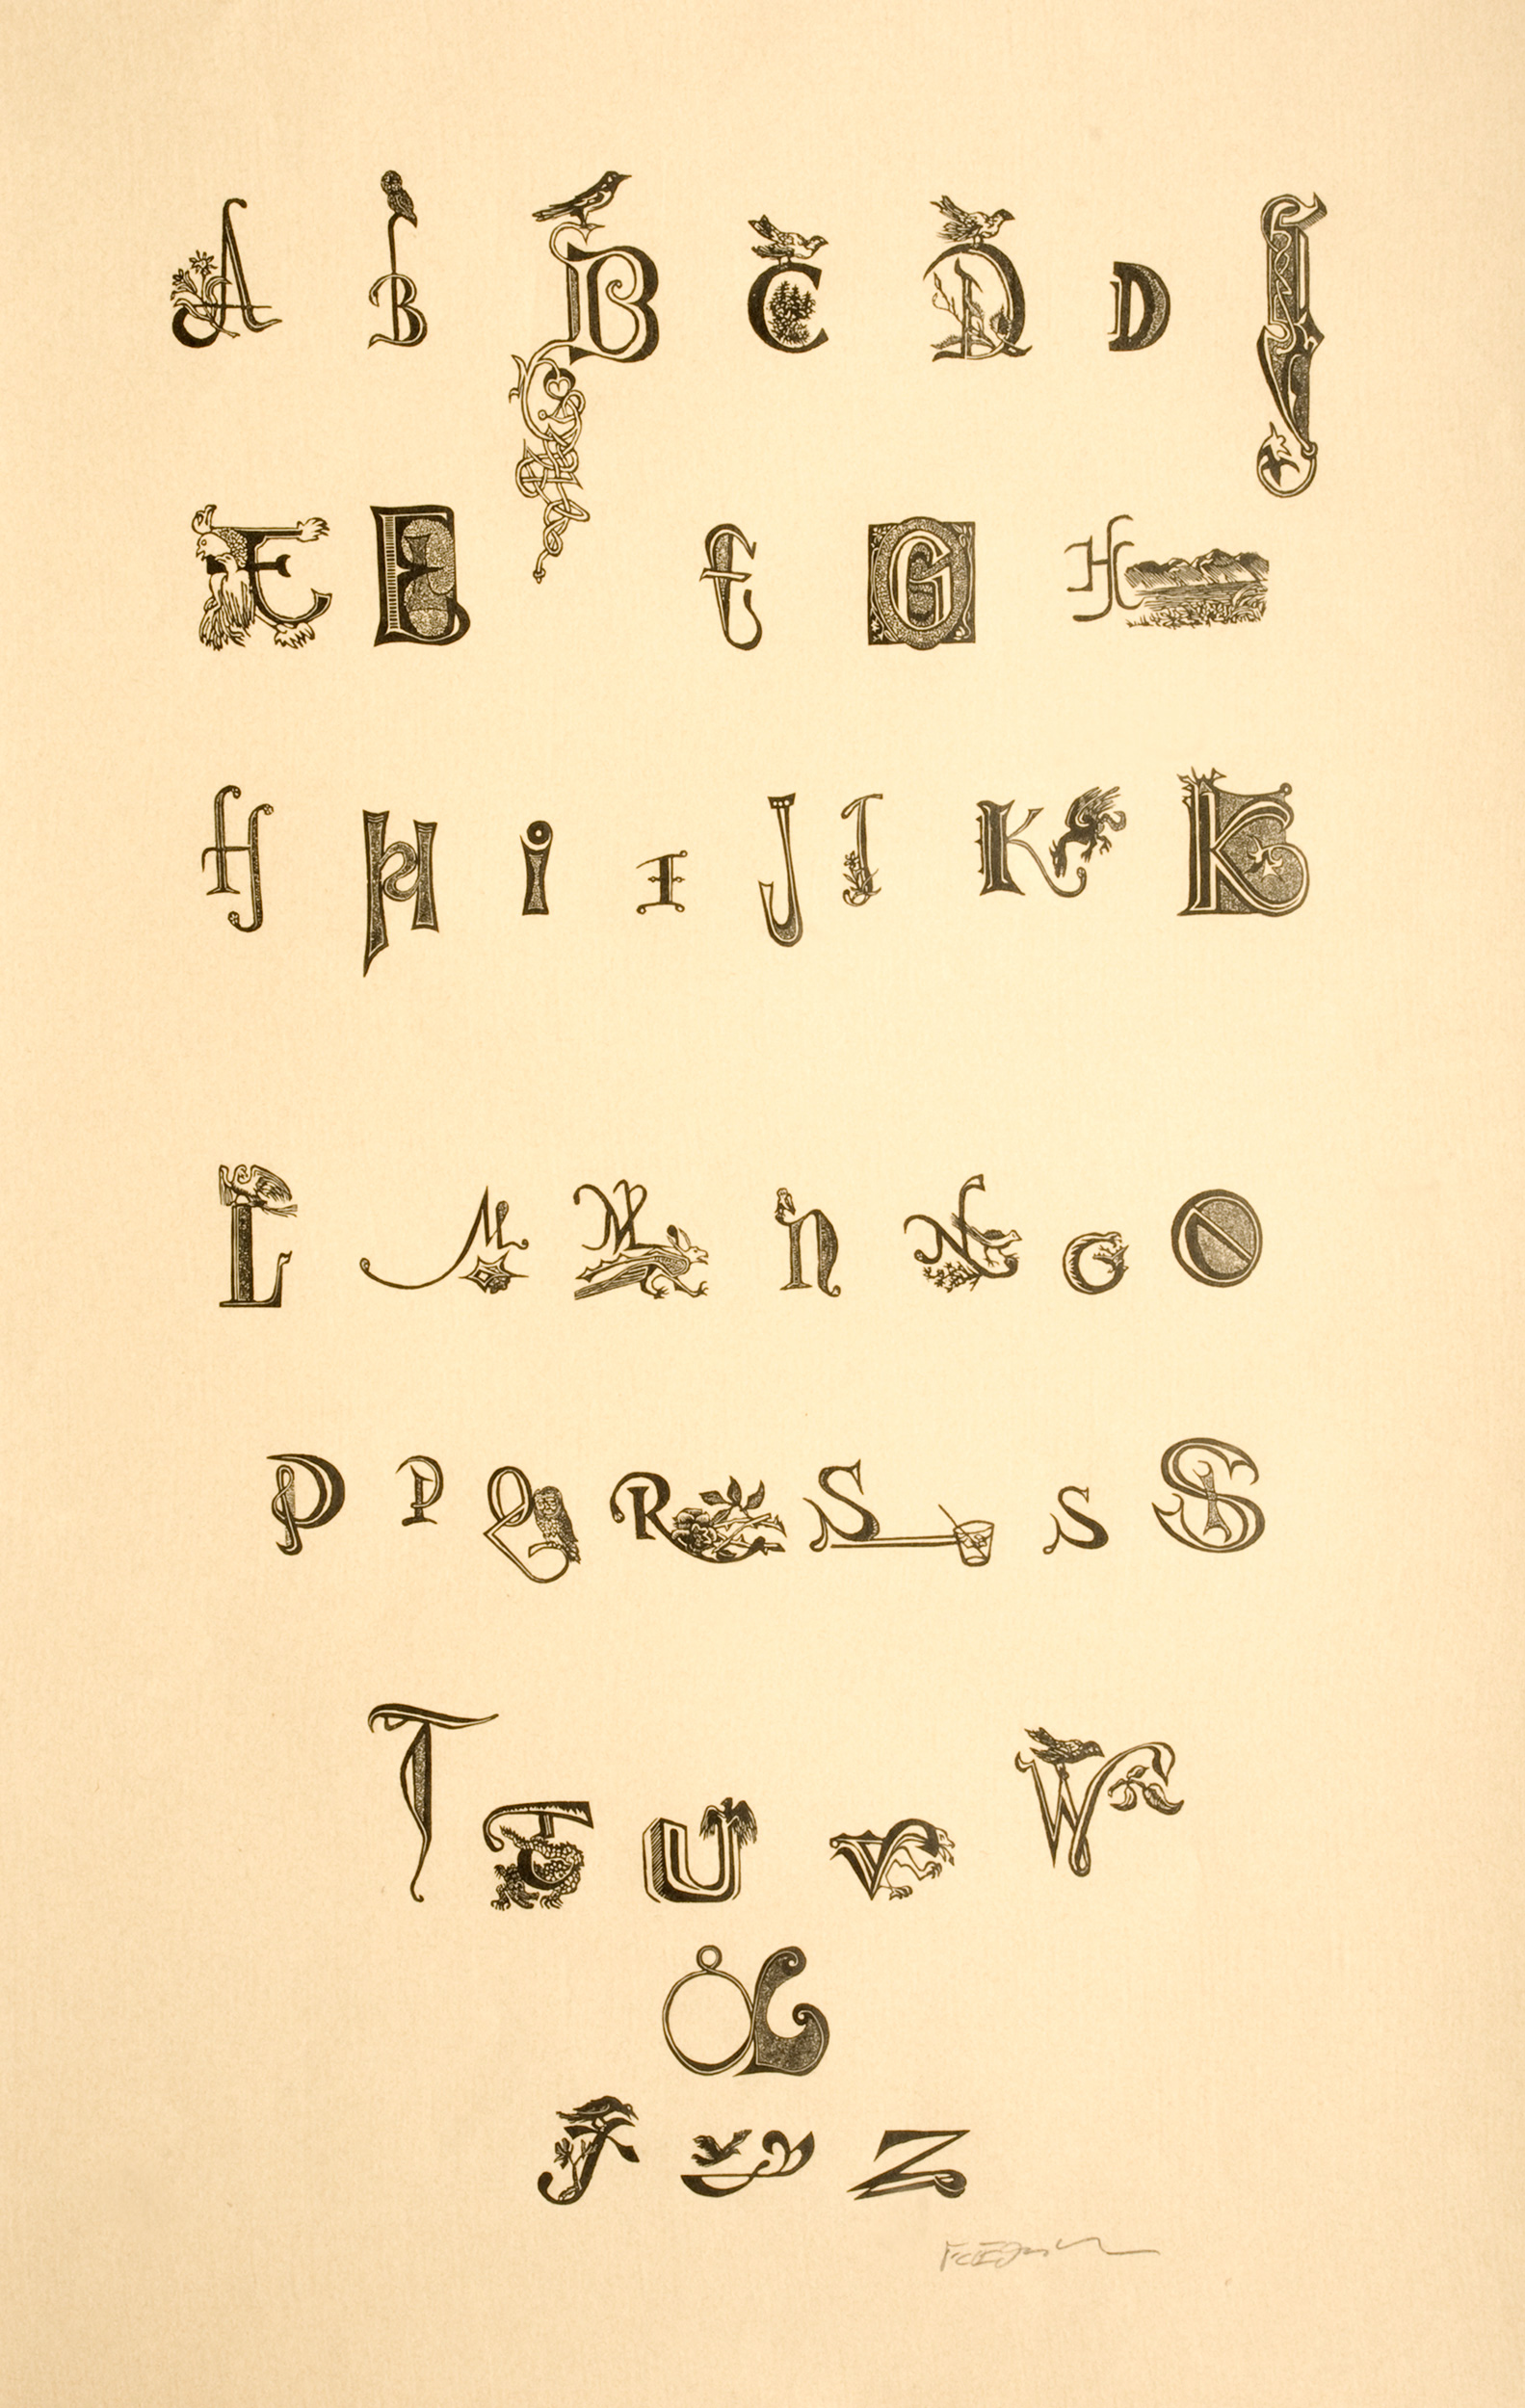 A B B C D D
E E G H
H H i I J J K K
L M M n N O O
P P Q R S S S
T T U V W
Z